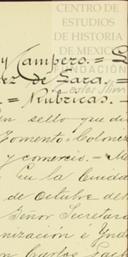 CENTRO DE
ESTUDIOS
DE HISTORIA
DE MEXICO
FUNDACIÓN
Carlos Slim
y Campero. =
de Lara. =
= Rúbricas. =
n sello que di
Fomento, Coloniz
y comercio. =
En la Ciuda
de Octubre del
Señor Secretario
nización é Yndu
n Carlos